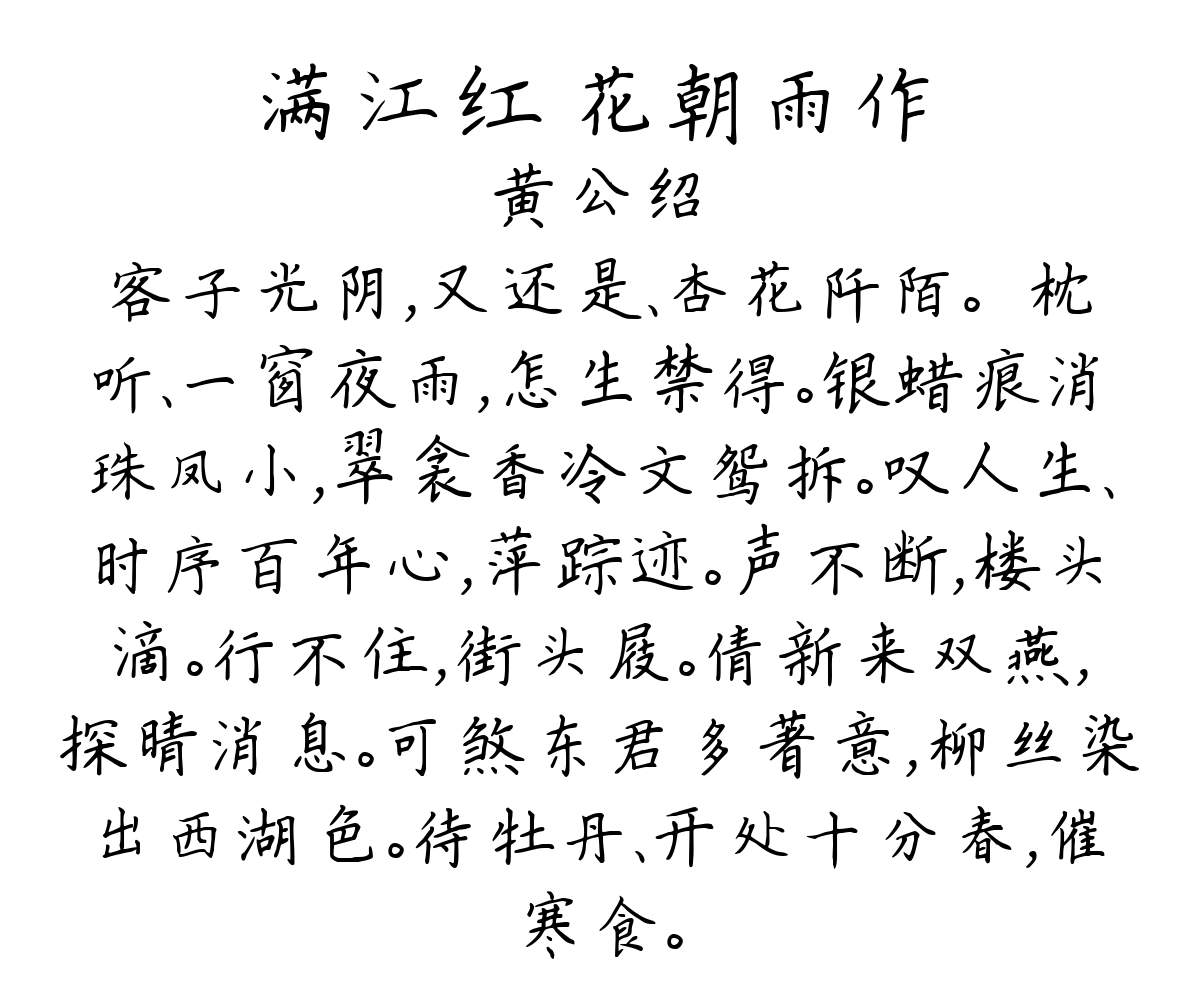 满江红 花朝雨作
黄公绍
客子光阴,又还是、杏花阡陌。 枕
听、一窗夜雨,怎生禁得。银蜡痕消
珠凤小,翠衾香冷文鸳拆。叹人生、
时序百年心,萍踪迹。声不断,楼头
滴。行不住,街头屐。倩新来双燕,
探晴消息。可煞东君多著意,柳丝染
出西湖色。待牡丹、开处十分春,催
寒食。